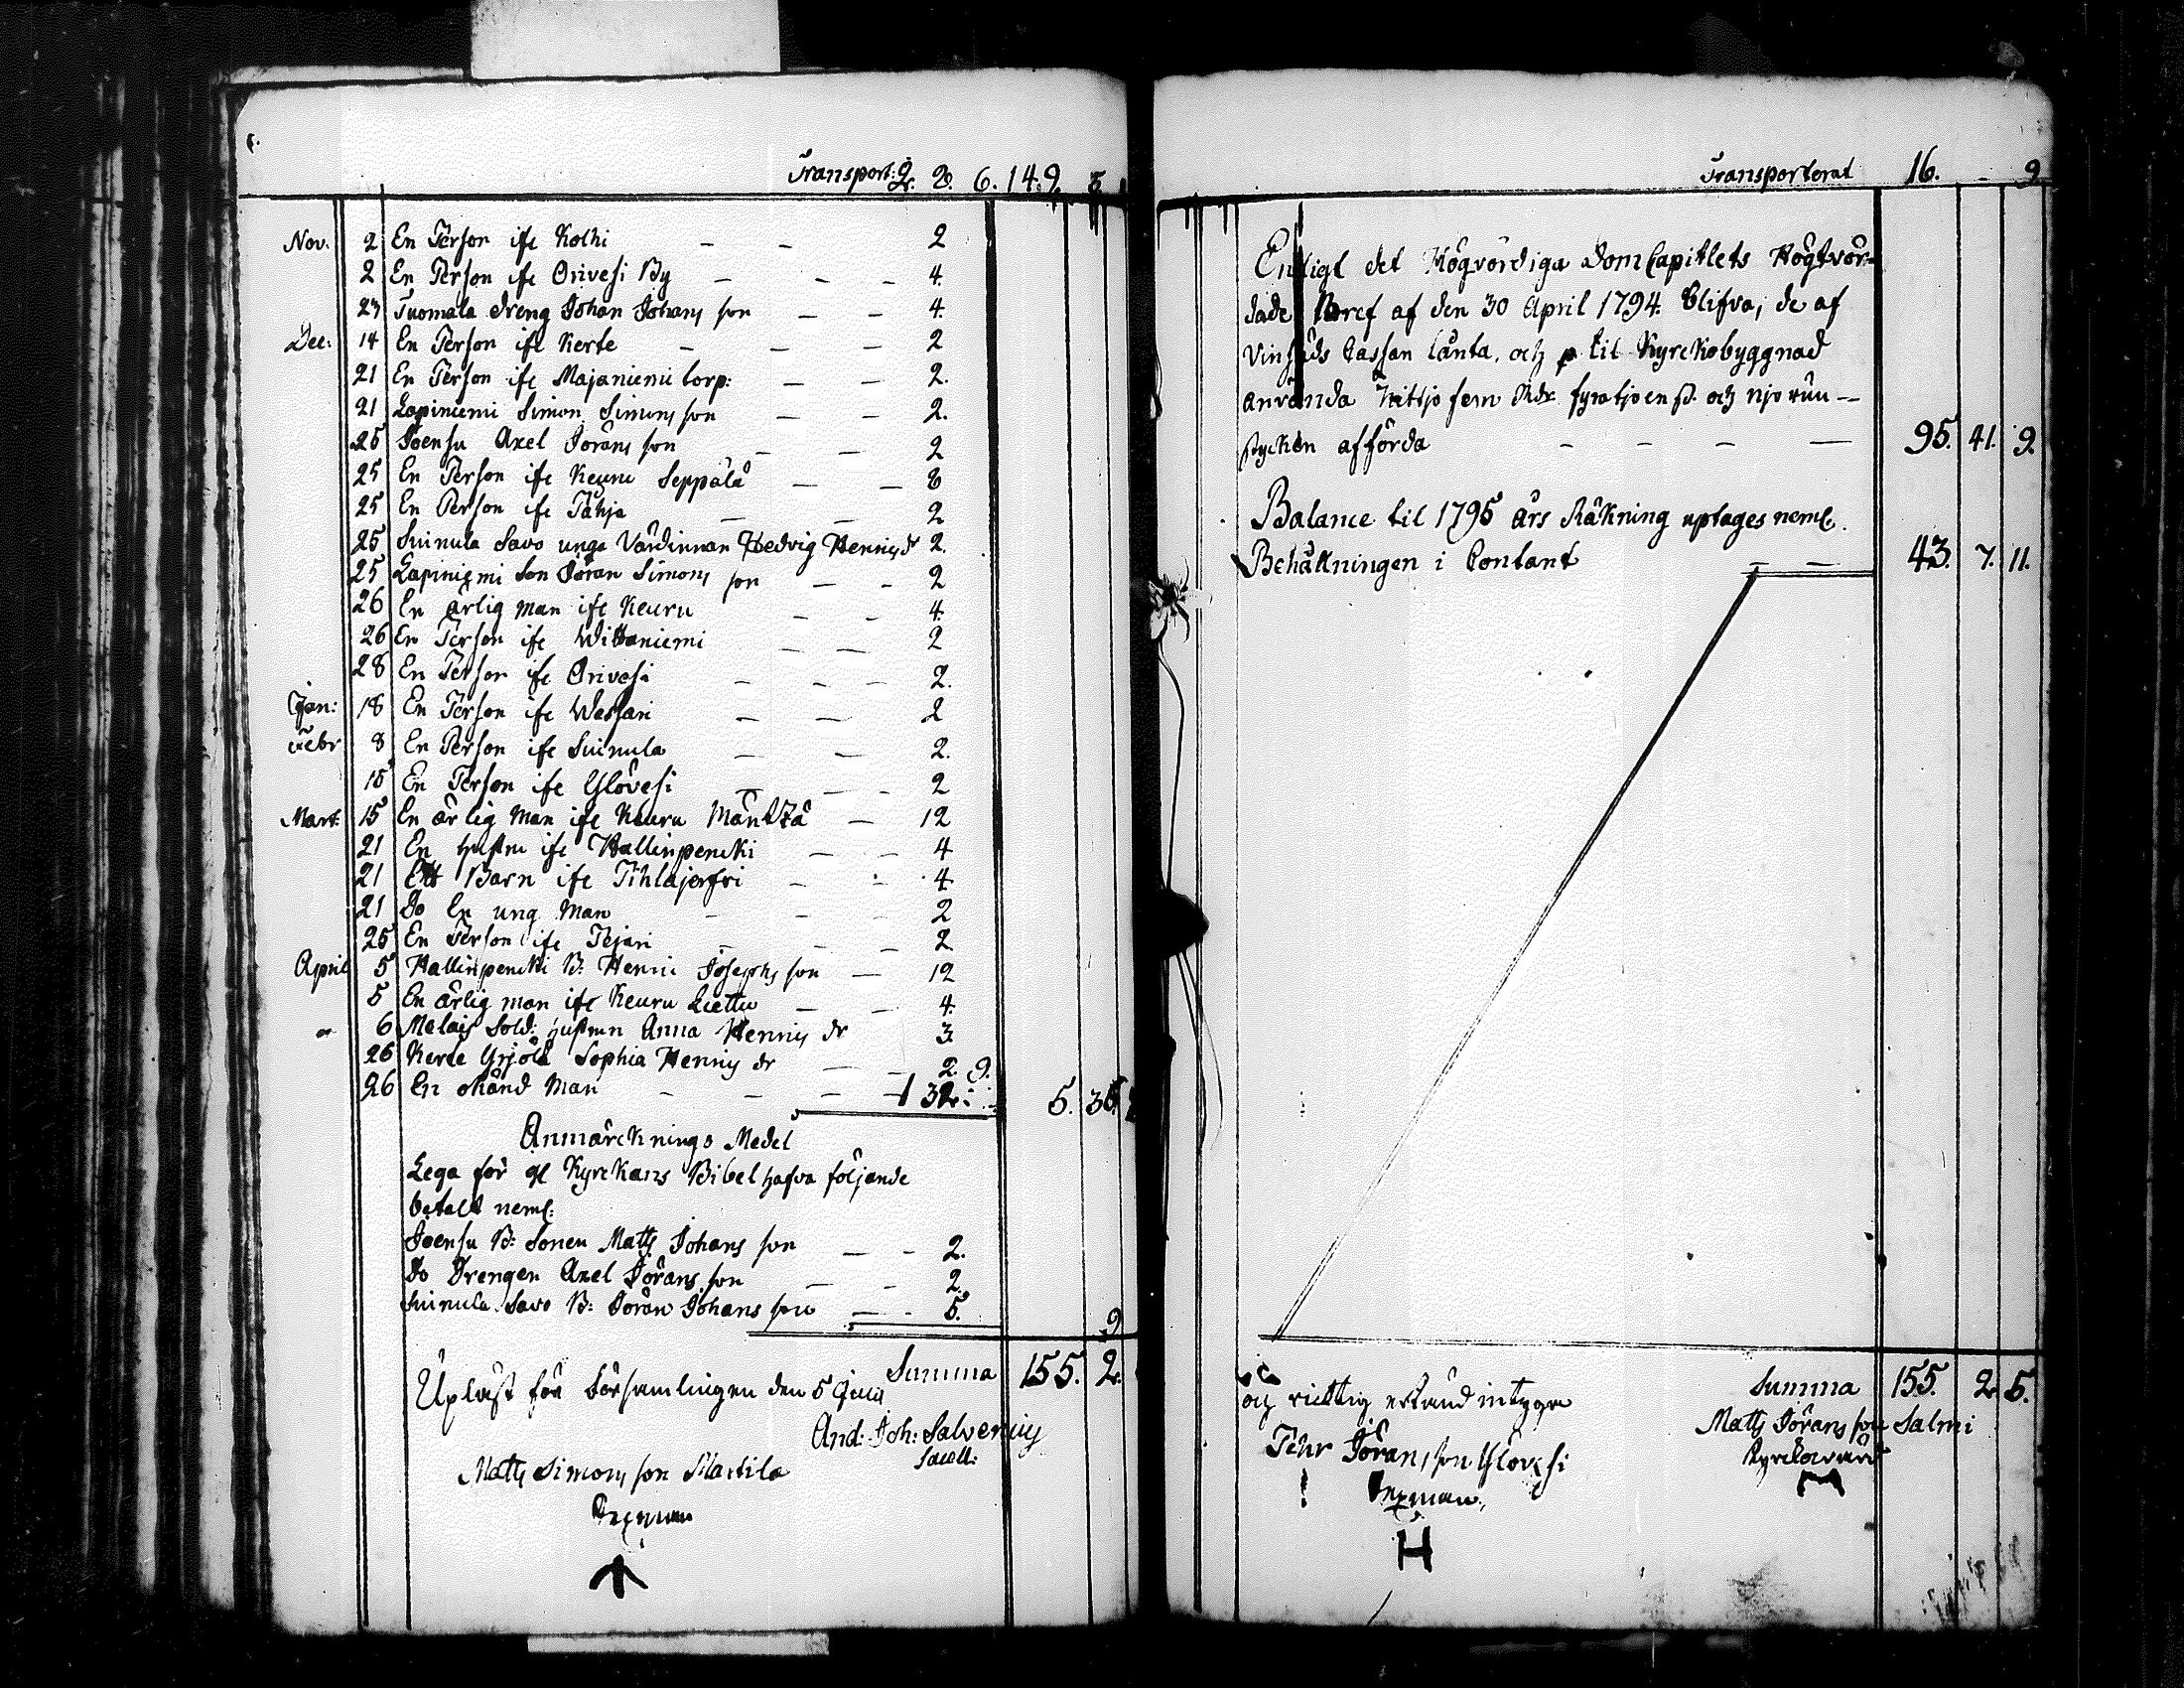 Transport: 2. 2. 6. 149. 5
Nov. 2 En Person ifr Kolhi — — 2
2 En Person ifr Orivesi By — — — 4.
23 Tuomala dreng Johan Johans son — — 4.
Dec: 14 En Person ifr Kerte — — — 2
21 En Person ifr Majaniemi torp: — — 2.
21 Lapiniemi Simon Simons son — — 2.
25 Joensu Axel Jörans son — — 2
25 En Person ifr Keuru Seppälä — — 8
25 En Person ifr Pähja — — 2
25 Suinula Savo unga Värdinnan Hedvig Henrics dr 2.
25 Lapiniemi Son Jöran Simons son — — 2
26 En ärlig man ifr Keuru — — 4.
26 En Person ifr Wittaniemi — — 2
28 En Person ifr Orivesi — — — 2.
Jan: 18 En Person ifr Wessari — — 2
Febr 8 En Person ifr Suinula — — 2.
15 En Person ifr Ylövesi — — — 2
Mart. 15 En ärlig man ifr Keuru Mänttä — 12
21 En hustru ifr Hallinpencki — — 4
21 Ett Barn ifr Pihlajerfvi — — 4
21 Do En ung Man — — — 2
25 En Person ifr Pejari — — — 2.
April 5 Hallinpencki B: Henric Josephs son — 12
5 En ärlig man ifr Keuru Liettu — — 4.
6 Malais Sold: hustrun Anna Henrics dr 3.
26 Kerte Yrjölä Sophia Henrics dr — — 2. 9.
26 En okänd Man — — — — 132. 5. 36.
Anmärcknings Medel
Lega för gl Kyrckans Bibel hafva följande
betalt neml:
Joensu B: Sonen Matts Johans son — — 2.
Do Drengen Axel Jörans son — — 2.
Suinula Savo B: Jöran Johans son — — 5. 9
Summa 155. 2.
Upläst för Församlingen den 5 Julii
And: Joh: Salvenius
Sacell:
Matts Simons son Martila
Sexman
Transporterat 16. - 9.
Enligt det Högvördiga DomCapitlets Högtvör-
dade Bref af den 30 April 1794. blifva, de af
Vinhåds Cassan länta, och til Kyrckobyggnad
använda Nittjo fem Rdr fyratjo en s. och njo run-
stycken afförda — — — — 95. 41. 9.
Balance til 1795 års Räkning uptages neml.
Behållningen i Contant — — 43. 7. 11.
Summa 155. 2 5.
och richtig erkänd intygar
Matts Jörans son Salmi
Kyrckovärd
Pehr Jörans son Ylövesi
Sexman
H